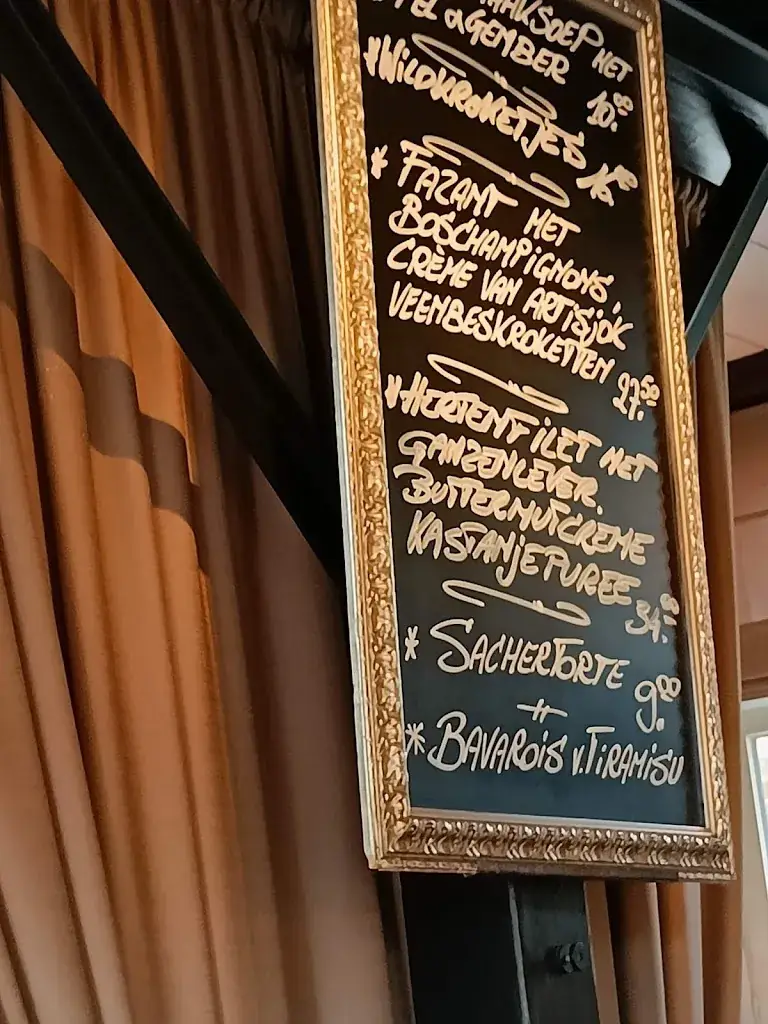 MAKSOEP MET
& GEMBER 10.00
*WILDKROKETJES
* FAZANT MET
BOSCHAMPIGNONS,
CRÈME VAN ARTISJOK
VEENBESKROKETTEN 27.50
*HERTENFILET MET
GANZENLEVER.
BUTTERNUTCREME
KASTANJEPUREE
34.00
* SACHERTORTE 9.00
* BAVAROIS v. TIRAMISU